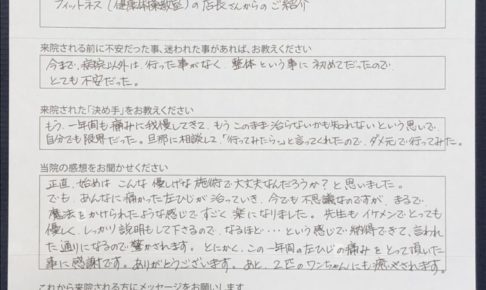 フィットネス(健康体操教室)の店長さんからのご紹介
来院される前に不安だった事、迷われた事があれば、お教えください
今まで、病院以外は、行った事がなく、整体という事に初めてだったので、
とても不安だった。
来院された「決め手」をお教えください
もう、一年間も痛みに我慢してきて、もうこのまま治らないかも知れないという思いで、
自分でも限界だった。旦那に相談して「行ってみたら。」と言ってくれたので、ダメ元で行ってみた。
当院の感想をお聞かせください
正直、始めはこんな優しげな施術で大丈夫なんだろうか?と思いました。
でも、あんなに痛かった左ひじが治っていき、今でも不思議なのですが、まるで、
魔法をかけられたような感じですごく楽になりました。先生もイケメンでとっても
優しく、しっかり説明もして下さるので、なるほど・・・という感じで納得できて、言われ
た通りになるので驚かされます。とにかく、この一年間の左ひじの痛みをとって頂いた
事に感謝です。ありがとうございます。あと、2匹のワンちゃんにも癒やされます。
これから来院される方にメッセージをお願いします